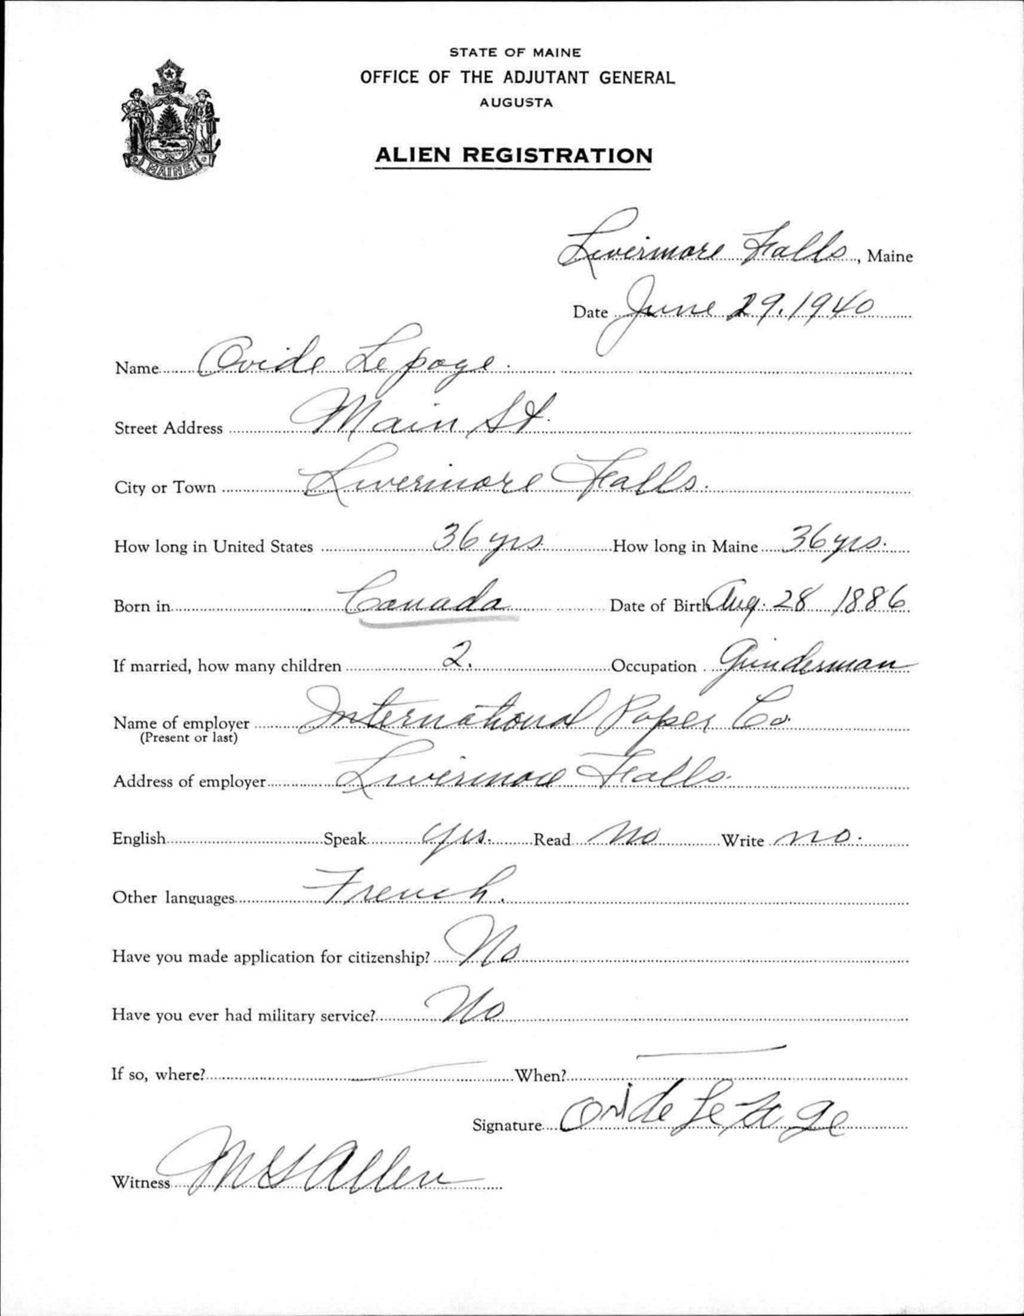 STATE OF MAINE
OFFICE OF THE ADJUTANT GENERAL
AUGUSTA
ALIEN REGISTRATION
MAINE
Livermore Falls, Maine
Date June 29, 1940
Name Ovide Lepage.
Street Address Main St.
City or Town Livermore Falls.
How long in United States 36 yrs How long in Maine 36 yrs.
Born in Canada Date of Birth Aug. 28 1886
If married, how many children 2. Occupation Grinderman
Name of employer International Paper Co.
(Present or last)
Address of employer Livermore Falls.
English Speak yes. Read No Write no.
Other languages French.
Have you made application for citizenship? No
Have you ever had military service? No
If so, where? When?
Signature Ovide LePage
Witness Allen